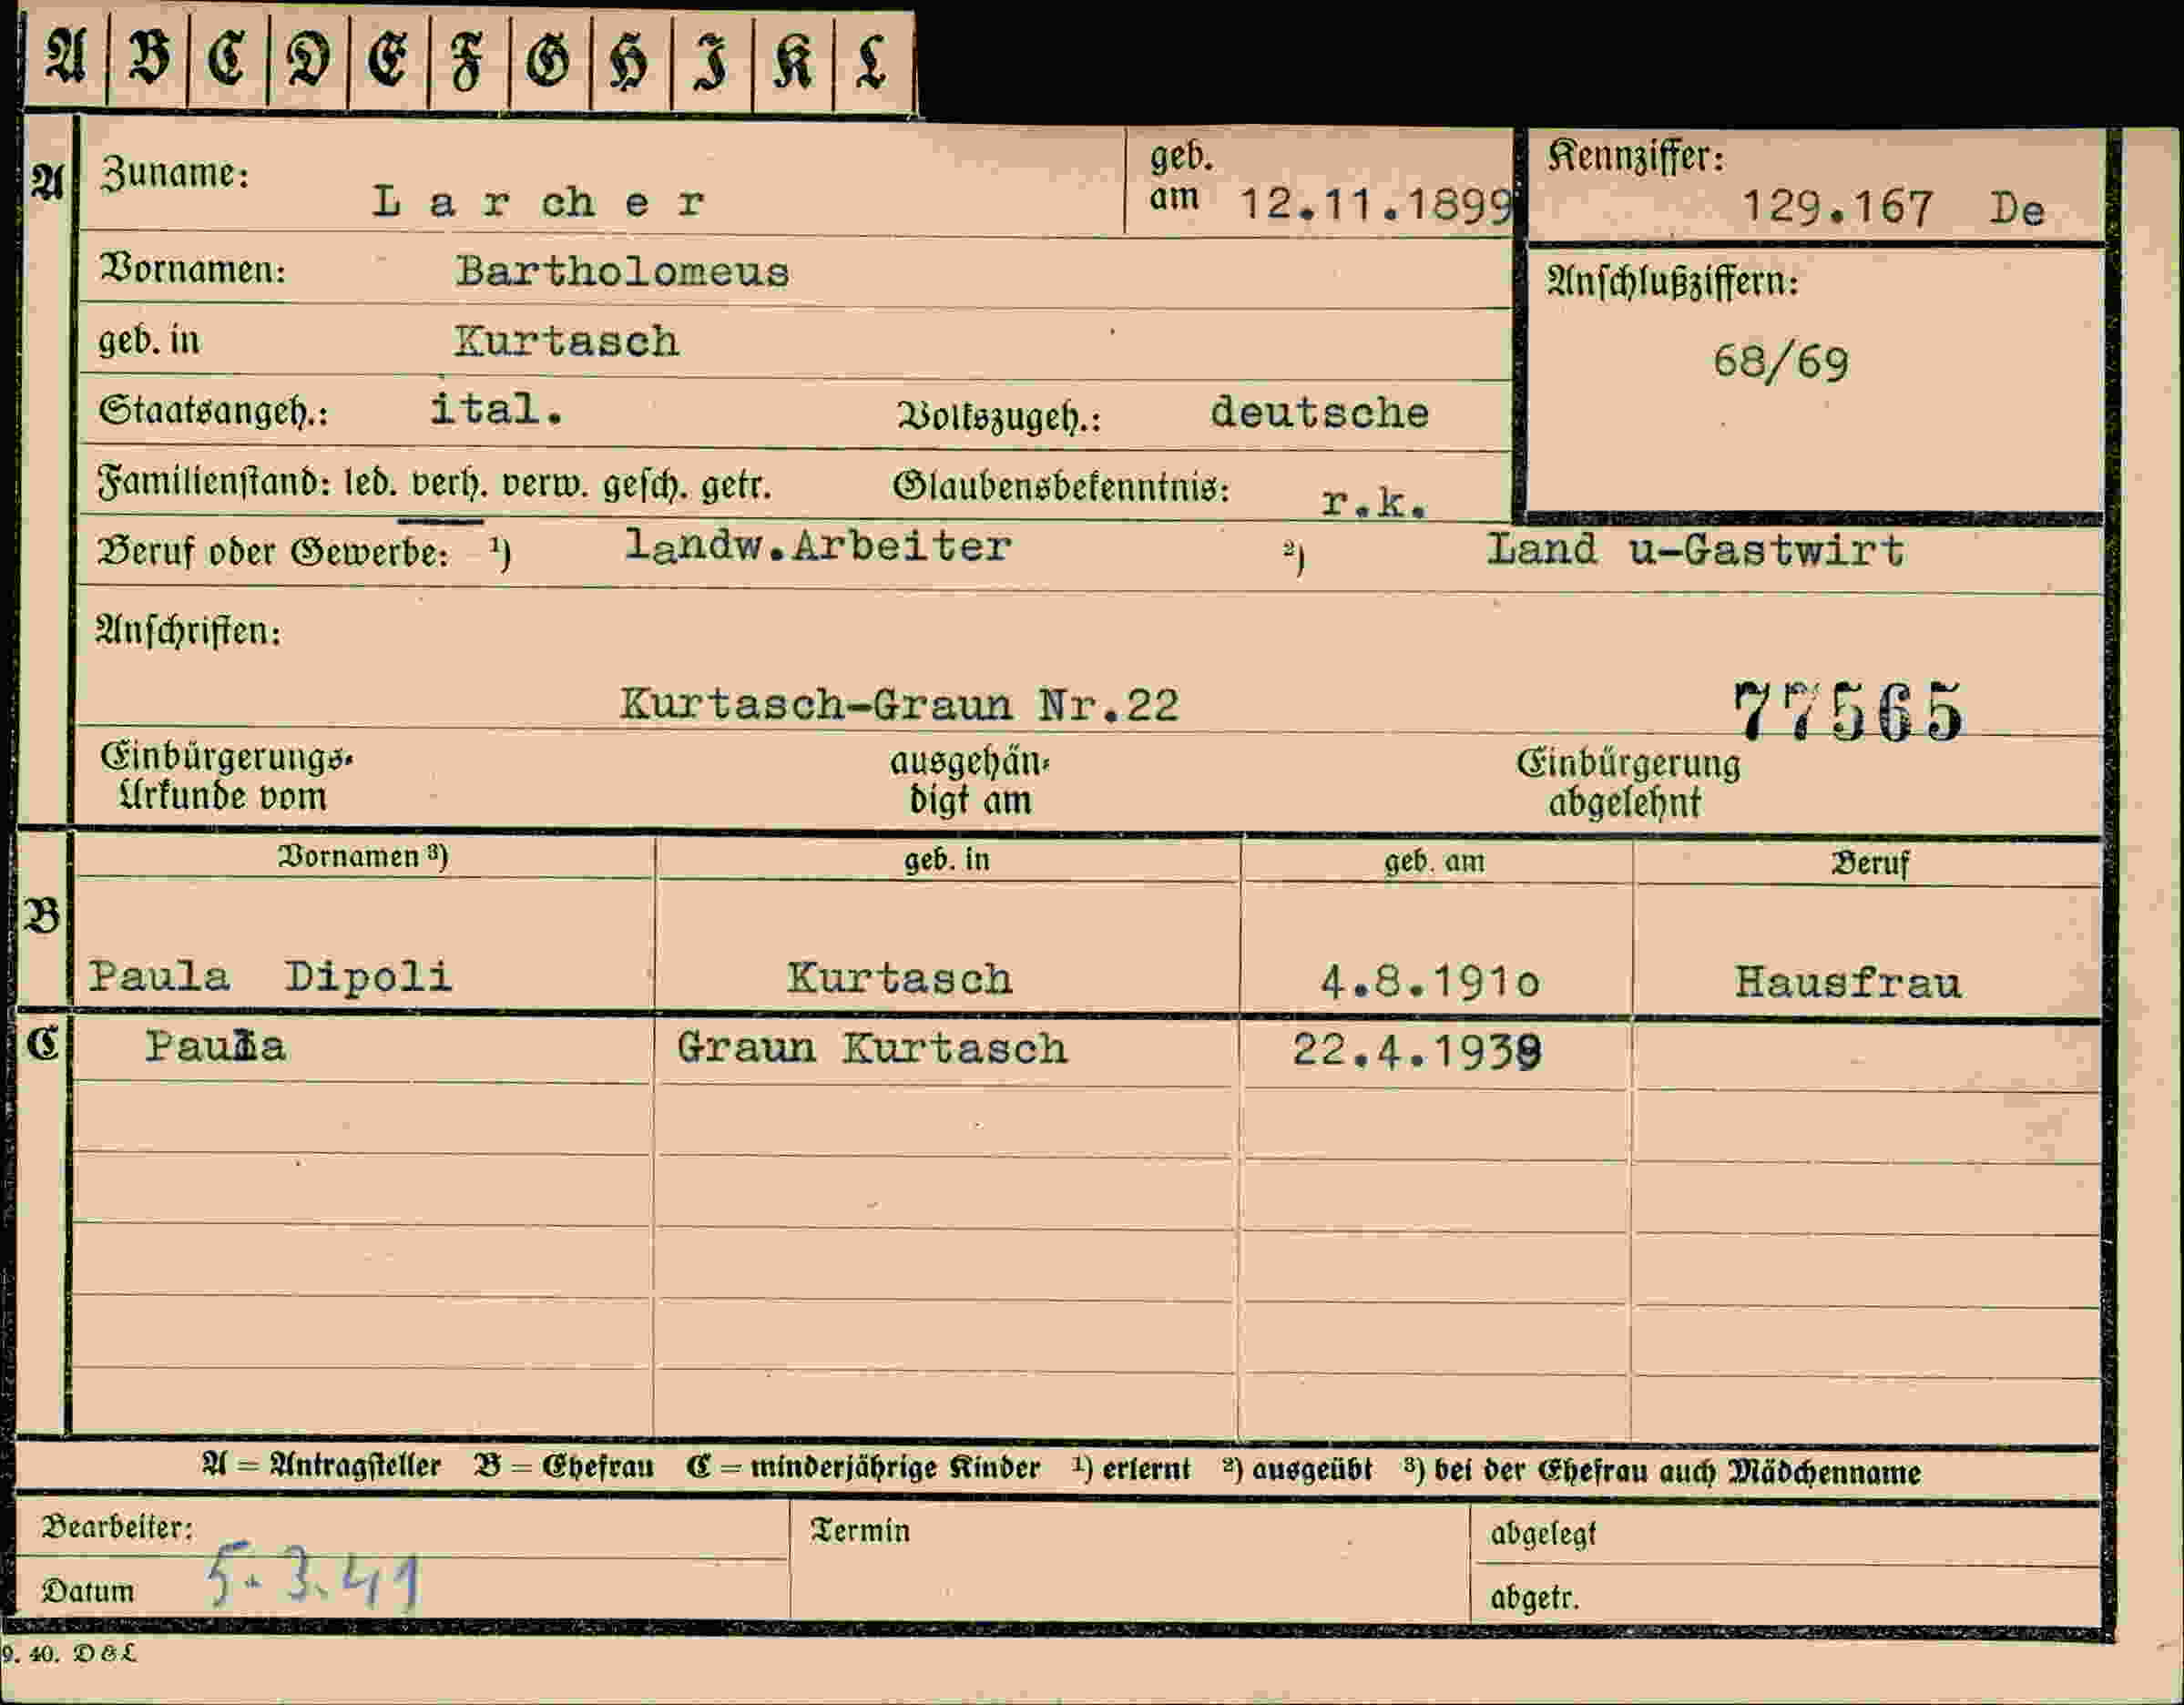 A B C D E F G H I K L
A Zuname: Larcher geb. am 12.11.1899 Kennziffer: 129.167 De
Vornamen: Bartholomeus Anschlußziffern:
geb. in Kurtasch 68/69
Staatsangeh.: ital. Volkszugeh.: deutsche
Familienstand: led. verh. verw. gesch. getr. Glaubensbekenntnis: r.k.
Beruf oder Gewerbe: ¹) landw.Arbeiter ²) Land u-Gastwirt
Anschriften:
Kurtasch-Graun Nr.22 77565
Einbürgerungs- ausgehän- Einbürgerung
Urkunde vom digt am abgelehnt
Vornamen ³) geb. in geb. am Beruf
B
Paula Dipoli Kurtasch 4.8.191o Hausfrau
C Paula Graun Kurtasch 22.4.1939
A = Antragsteller B = Ehefrau C = minderjährige Kinder ¹) erlernt ²) ausgeübt ³) bei der Ehefrau auch Mädchenname
Bearbeiter: Termin abgelegt
Datum 5.3.41 abgetr.
9. 40. D&L